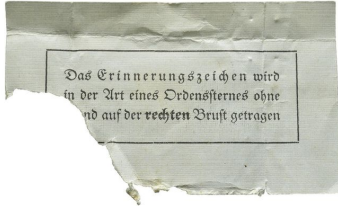 Das Erinnerungszeichen wird
in der Art eines Ordenssternes ohne
nd auf der rechten Brust getragen